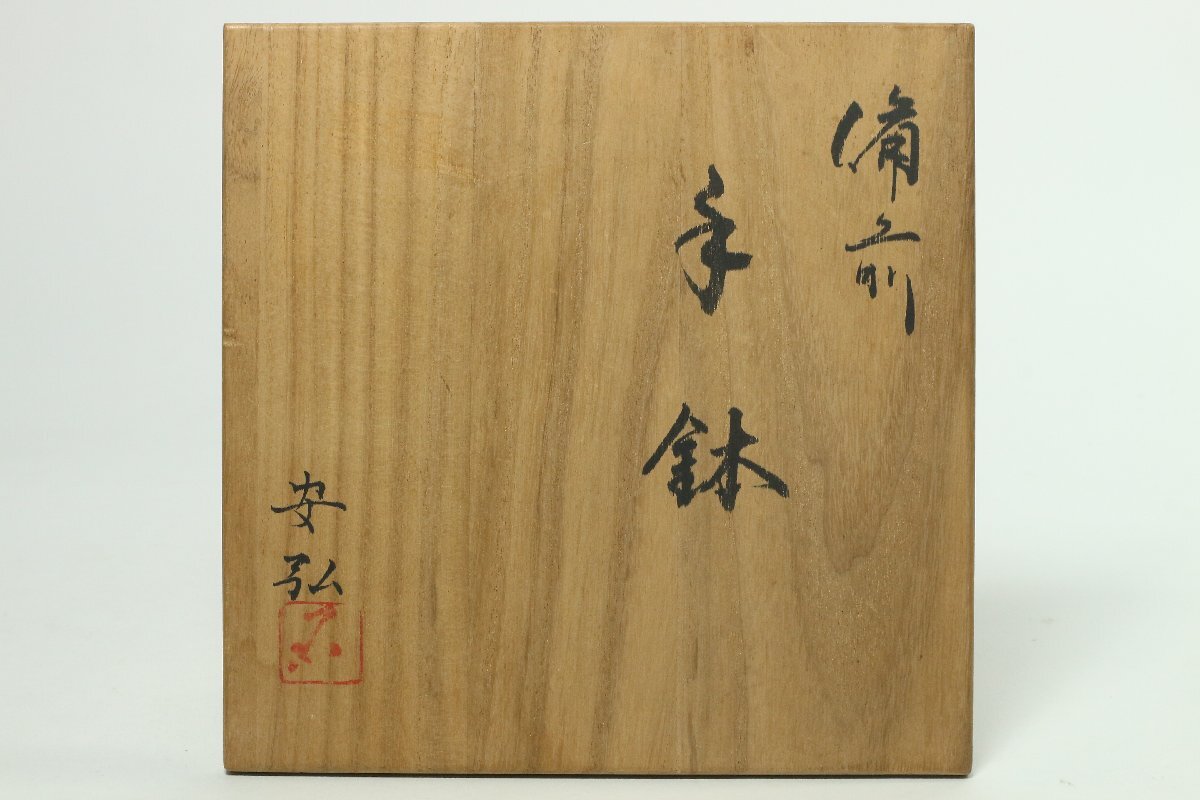 備前
手鉢
安弘